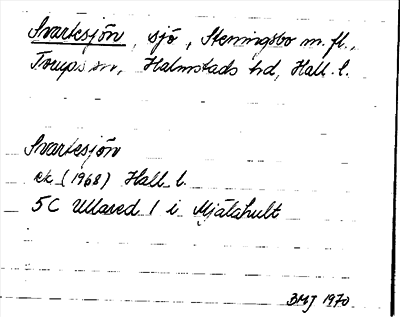 Svartesjön, sjö, Steningsbo m. fl.,
Torups sn, Halmstads hd, Hall. l.
Svartesjön
ek (1968) Hall l.
5C Ullared 1 i Mjälahult
BMJ 1970